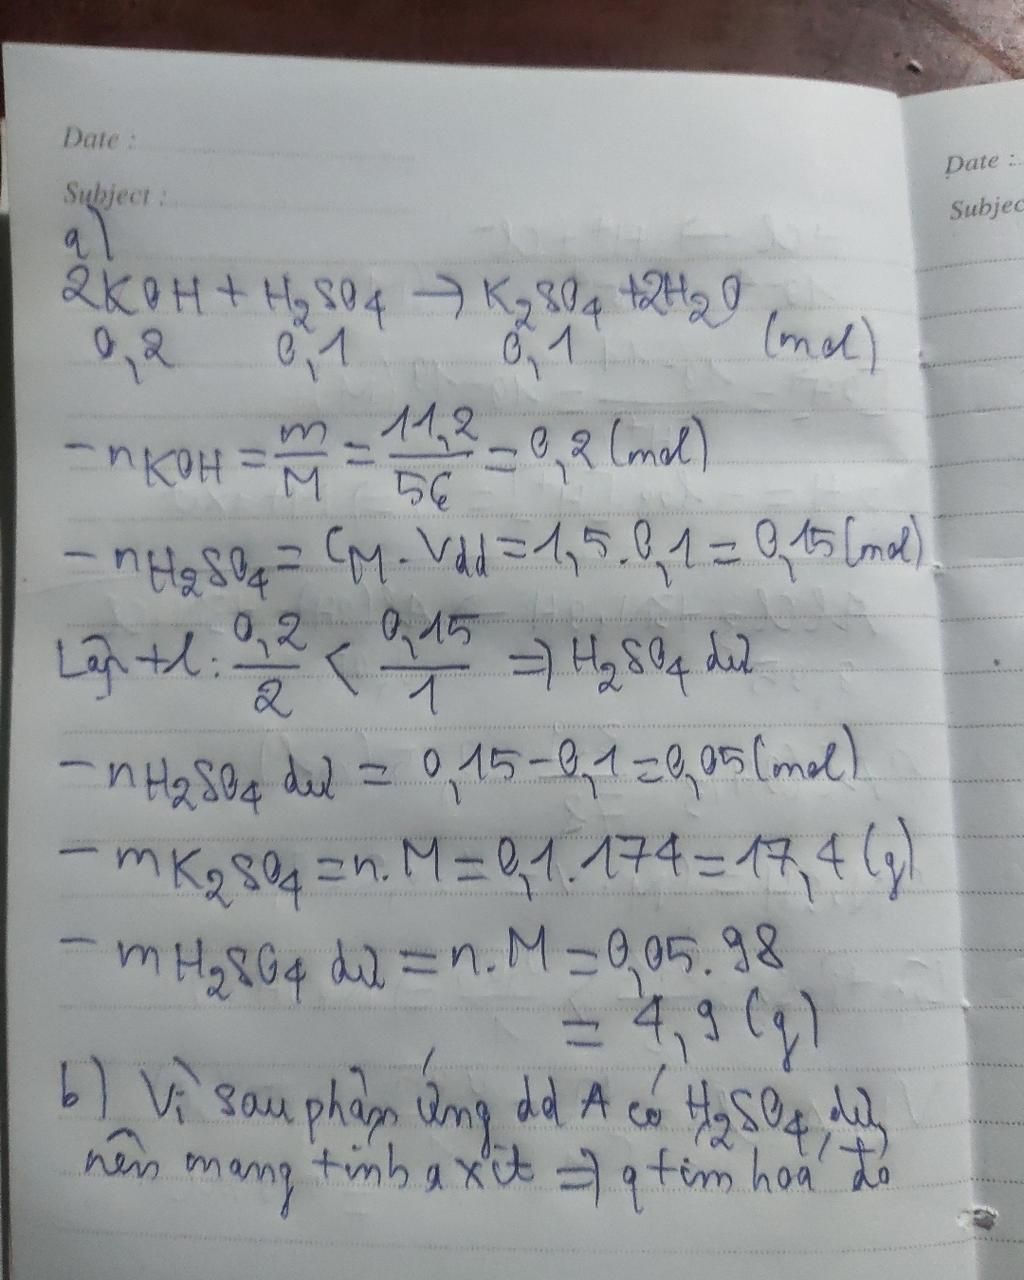 Date :
Subject :
Date :
Subjec
a)
2KOH + H2SO4 → K2SO4 + 2H2O
0,2 0,1 0,1 (mol)
- nKOH = m/M = 11,2/56 = 0,2 (mol)
- nH2SO4 = CM . Vdd = 1,5 . 0,1 = 0,15 (mol)
Lập tl : 0,2/2 < 0,15/1 => H2SO4 dư
- nH2SO4 dư = 0,15 - 0,1 = 0,05 (mol)
- mK2SO4 = n.M = 0,1 . 174 = 17,4 (g)
- mH2SO4 dư = n.M = 0,05 . 98
= 4,9 (g)
b) Vì sau phản ứng dd A có H2SO4 dư,
nên mang tính axít => q tím hoá đỏ